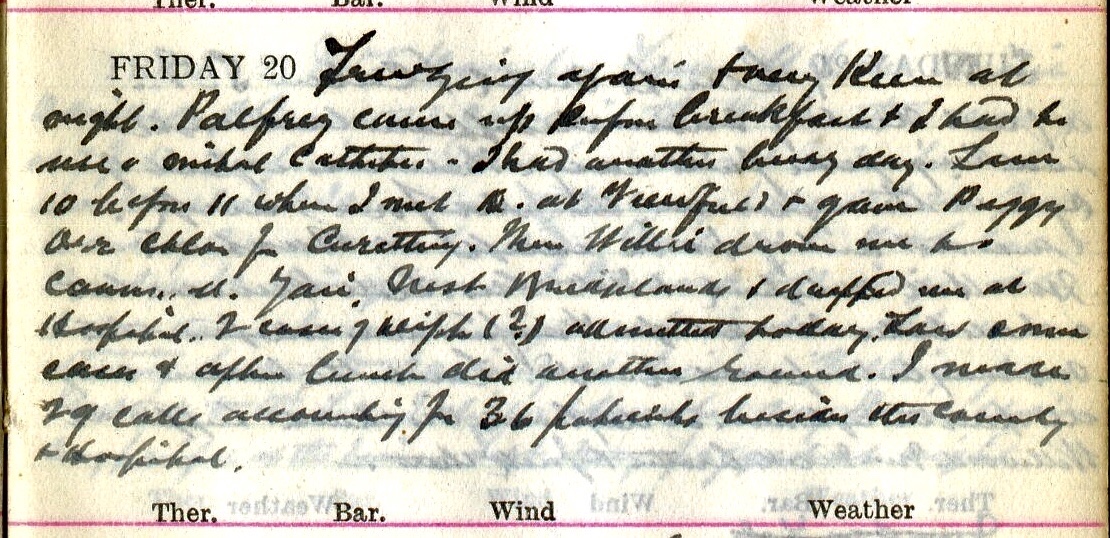 Ther. Bar. Wind Weather
FRIDAY 20 again & very Keen at
night. Palfrey came up before breakfast & I had to
use a Catheter - I had another busy day. Saw
10 before 11 when I met B. at & gave Peggy
Chlor for Curetting. Then Willie drove me to
West & dropped me at
Hospital. 2 cases of Diph (?) admitted today. Saw some
cases & after lunch did another round. I made
29 calls accounting for 36 patients besides the County
& Hospital.
Ther. Bar. Wind Weather